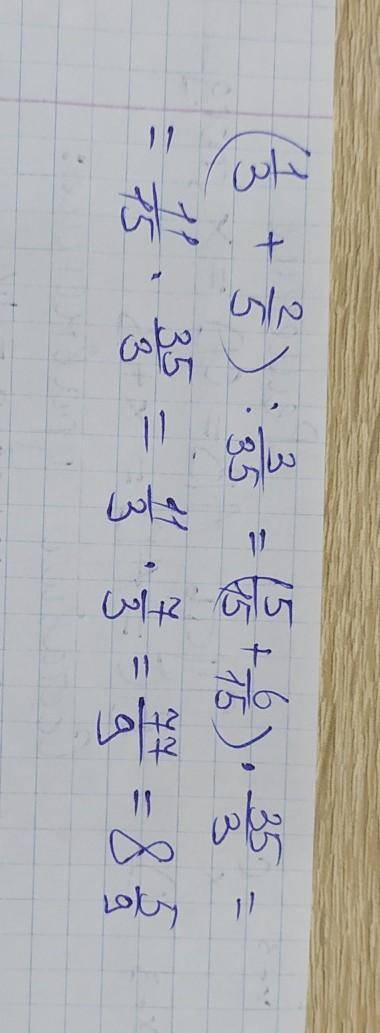 (1/3 + 2/5) : 3/35 = (5/15 + 6/15) · 35/3 =
= 11/15 · 35/3 = 11/3 · 7/3 = 77/9 = 8 5/9